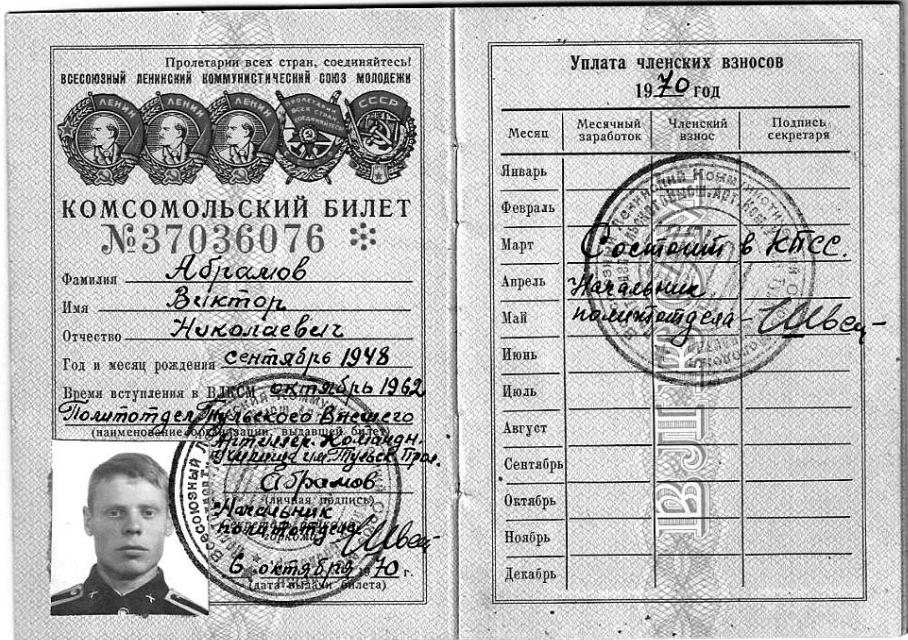 Пролетарии всех стран, соединяйтесь!
ВСЕСОЮЗНЫЙ ЛЕНИНСКИЙ КОММУНИСТИЧЕСКИЙ СОЮЗ МОЛОДЕЖИ
ЛЕНИН ЛЕНИН ЛЕНИН СССР
КОМСОМОЛЬСКИЙ БИЛЕТ
№37036076
Фамилия Абрамов
Имя Виктор
Отчество Николаевич
Год и месяц рождения сентябрь 1948
Время вступления в ВЛКСМ октябрь 1962
Политотдел Тульского Высшего
(наименование организации, выдавшей билет)
Артиллер. Командн.
Училища им. Тульск. Прол.
Абрамов
(личная подпись)
Начальник
политотдела Швец
6 октября 1970 г.
(дата выдачи билета)
Уплата членских взносов
1970 год
Месяц
Месячный заработок
Членский взнос
Подпись секретаря
Январь
Февраль
Март
Состоит в КПСС.
Апрель
Начальник
Май
политотдела - Швец
Июнь
Июль
Август
Сентябрь
Октябрь
Ноябрь
Декабрь
ВЛКСМ